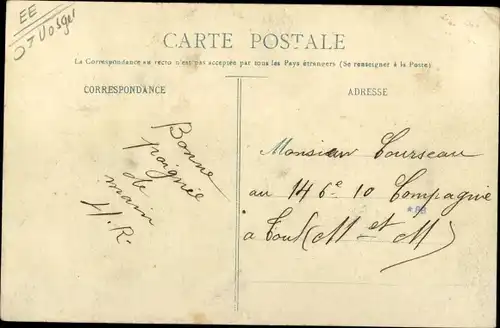 EE
Vosges
CARTE POSTALE
La Correspondance au recto n'est pas acceptée par tous les Pays étrangers (Se renseigner à la Poste)
CORRESPONDANCE
ADRESSE
Bonne
poignée
de
main
H.R.
Monsieur Courseau
au 146e 10 Compagnie
a Toul (M et M)